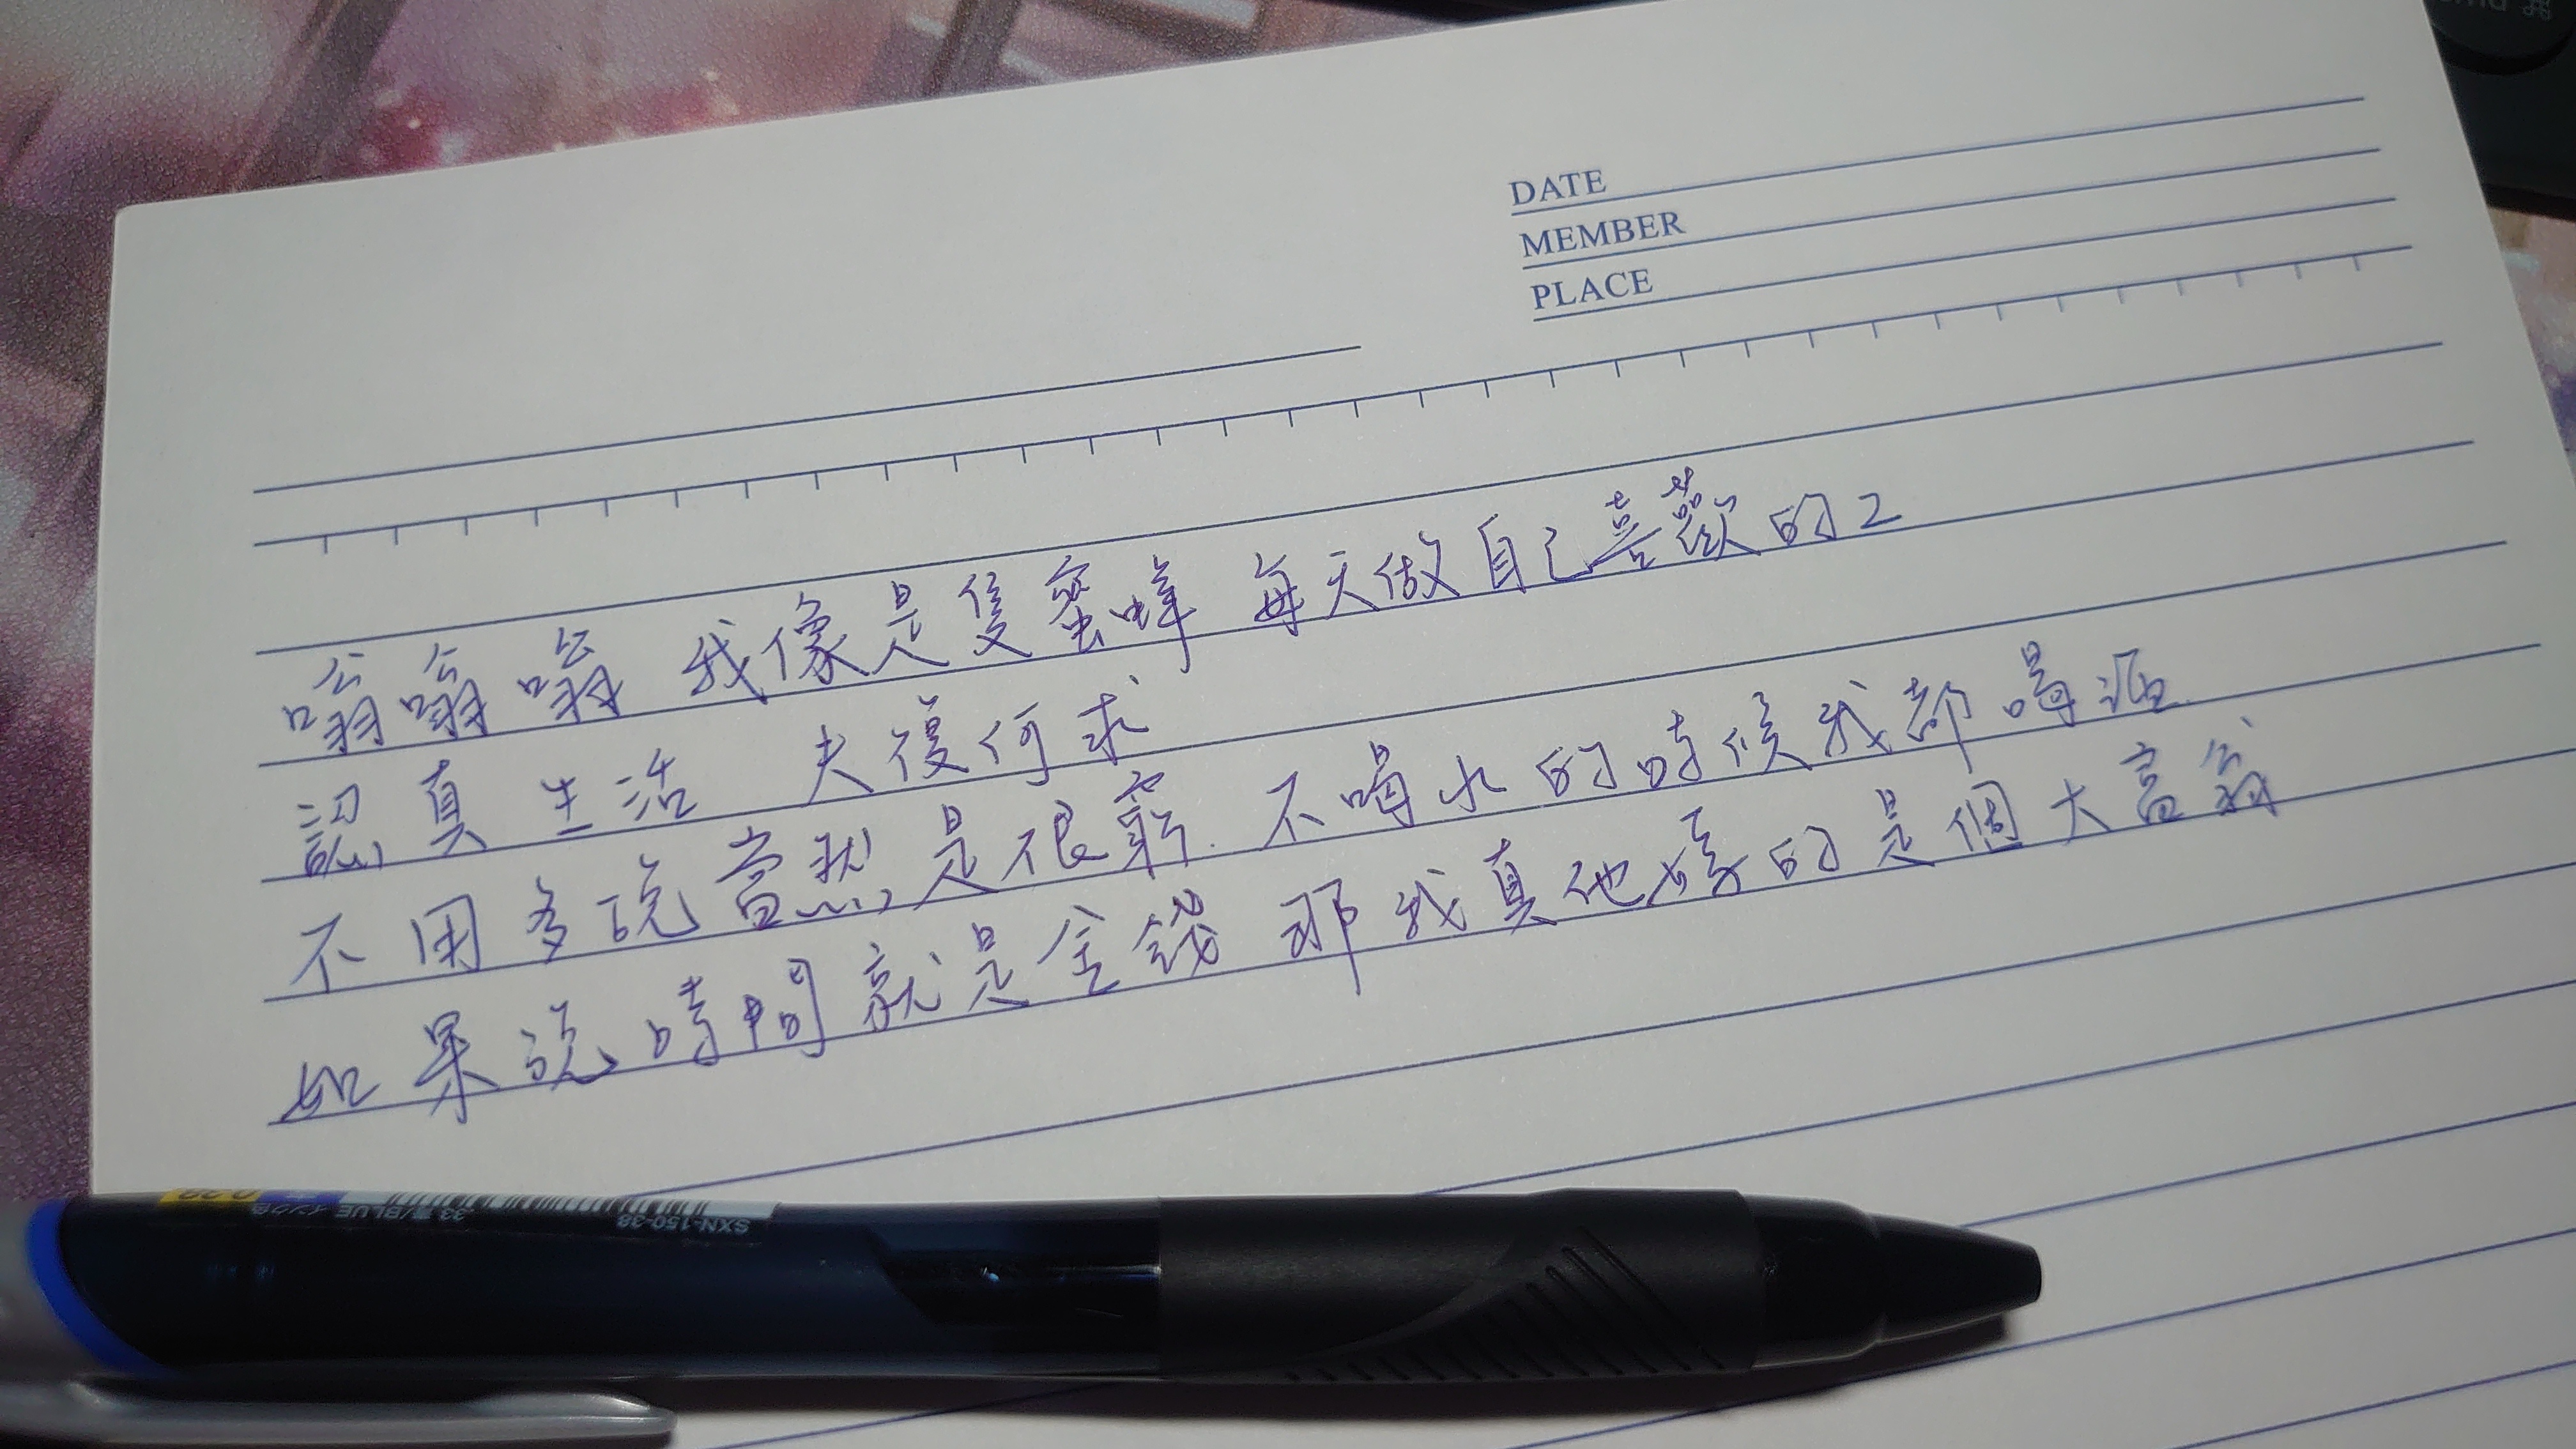 DATE
MEMBER
PLACE
嗡嗡嗡 我像是隻蜜蜂 每天做自己喜歡的工
認真生活 夫復何求
不用多說當然是很窮. 不喝水的時候我都喝酒.
如果說時間就是金錢 那我真他媽的是個大富翁
SXN-150-38
33 青/BLUE インク色